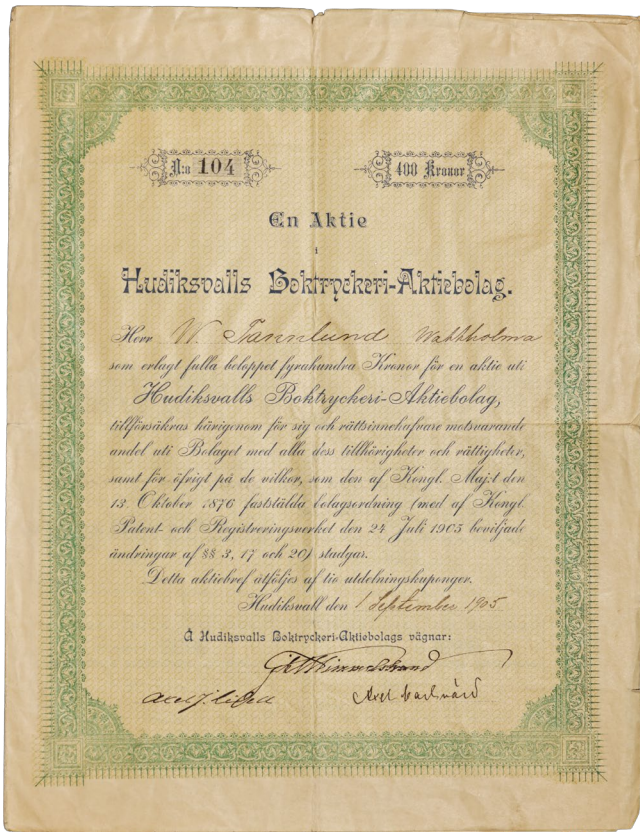 N:o 104
400 Kronor
En Aktie
i
Hudiksvalls Boktryckeri-Aktiebolag.
Herr W. Tannlund Wahlholma
som erlagt fulla beloppet fyrahundra Kronor för en aktie uti
Hudiksvalls Boktryckeri-Aktiebolag,
tillförsäkras härigenom för sig och rättsinnehafvare motsvarande
andel uti Bolaget med alla dess tillhörigheter och rättigheter,
samt för öfrigt på de vilkor, som den af Kongl. Maj:t den
13. Oktober 1876 faststälda bolagsordning (med af Kongl.
Patent- och Registreringsverket den 24 Juli 1905 beviljade
ändringar af §§ 3, 17 och 20) stadgar.
Detta aktiebref åtföljes af tio utdelningskuponger.
Hudiksvall den 1 September 1905
Å Hudiksvalls Boktryckeri-Aktiebolags vägnar:
Axel J.
Axel